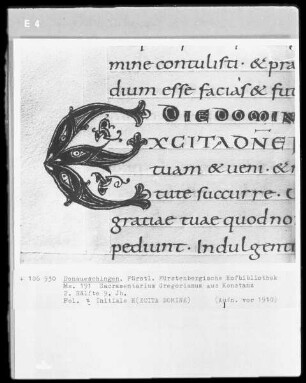 E 4
mine contulisti · & pra
dium esse facias & fut
DIE DOMIN
EXCITA DNE
tuam & ueni · &
tute succurre ·
gratiae tuae quod no
pediunt · Indulgenti
+ 100 930 Donaueschingen. Fürstl. Fürstenbergische Hofbibliothek
Ms. 191 Sacramentarius Gregorianus aus Konstanz
2. Hälfte 9. Jh.
Fol. Initiale E(XCITA DOMINE) (Aufn. vor 1910)